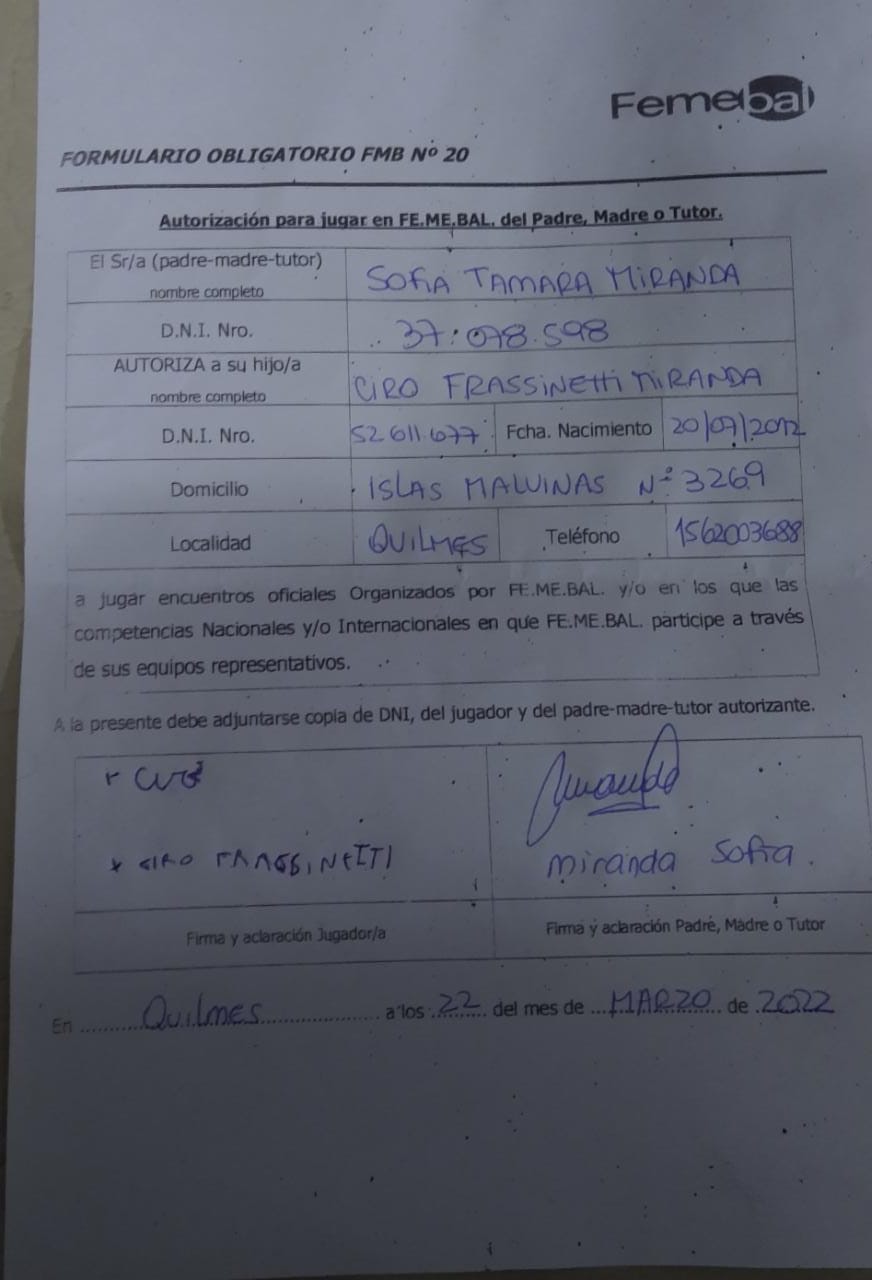 Femebal
FORMULARIO OBLIGATORIO FMB Nº 20
Autorización para jugar en FE.ME.BAL. del Padre, Madre o Tutor.
El Sr/a (padre-madre-tutor) nombre completo SOFIA TAMARA MIRANDA
D.N.I. Nro. 37.078.598
AUTORIZA a su hijo/a nombre completo CIRO FRASSINETTI MIRANDA
D.N.I. Nro. 52 611.677 Fcha. Nacimiento 20/07/2012
Domicilio ISLAS MALVINAS Nº 3269
Localidad QUILMES Teléfono 1562003688
a jugar encuentros oficiales Organizados por FE.ME.BAL. y/o en los que las
competencias Nacionales y/o Internacionales en que FE.ME.BAL. participe a través
de sus equipos representativos.
A la presente debe adjuntarse copia de DNI, del jugador y del padre-madre-tutor autorizante.
CIRO FRASSINETTI
miranda Sofia.
Firma y aclaración Jugador/a
Firma y aclaración Padre, Madre o Tutor
En Quilmes a los 22 del mes de MARZO de 2022